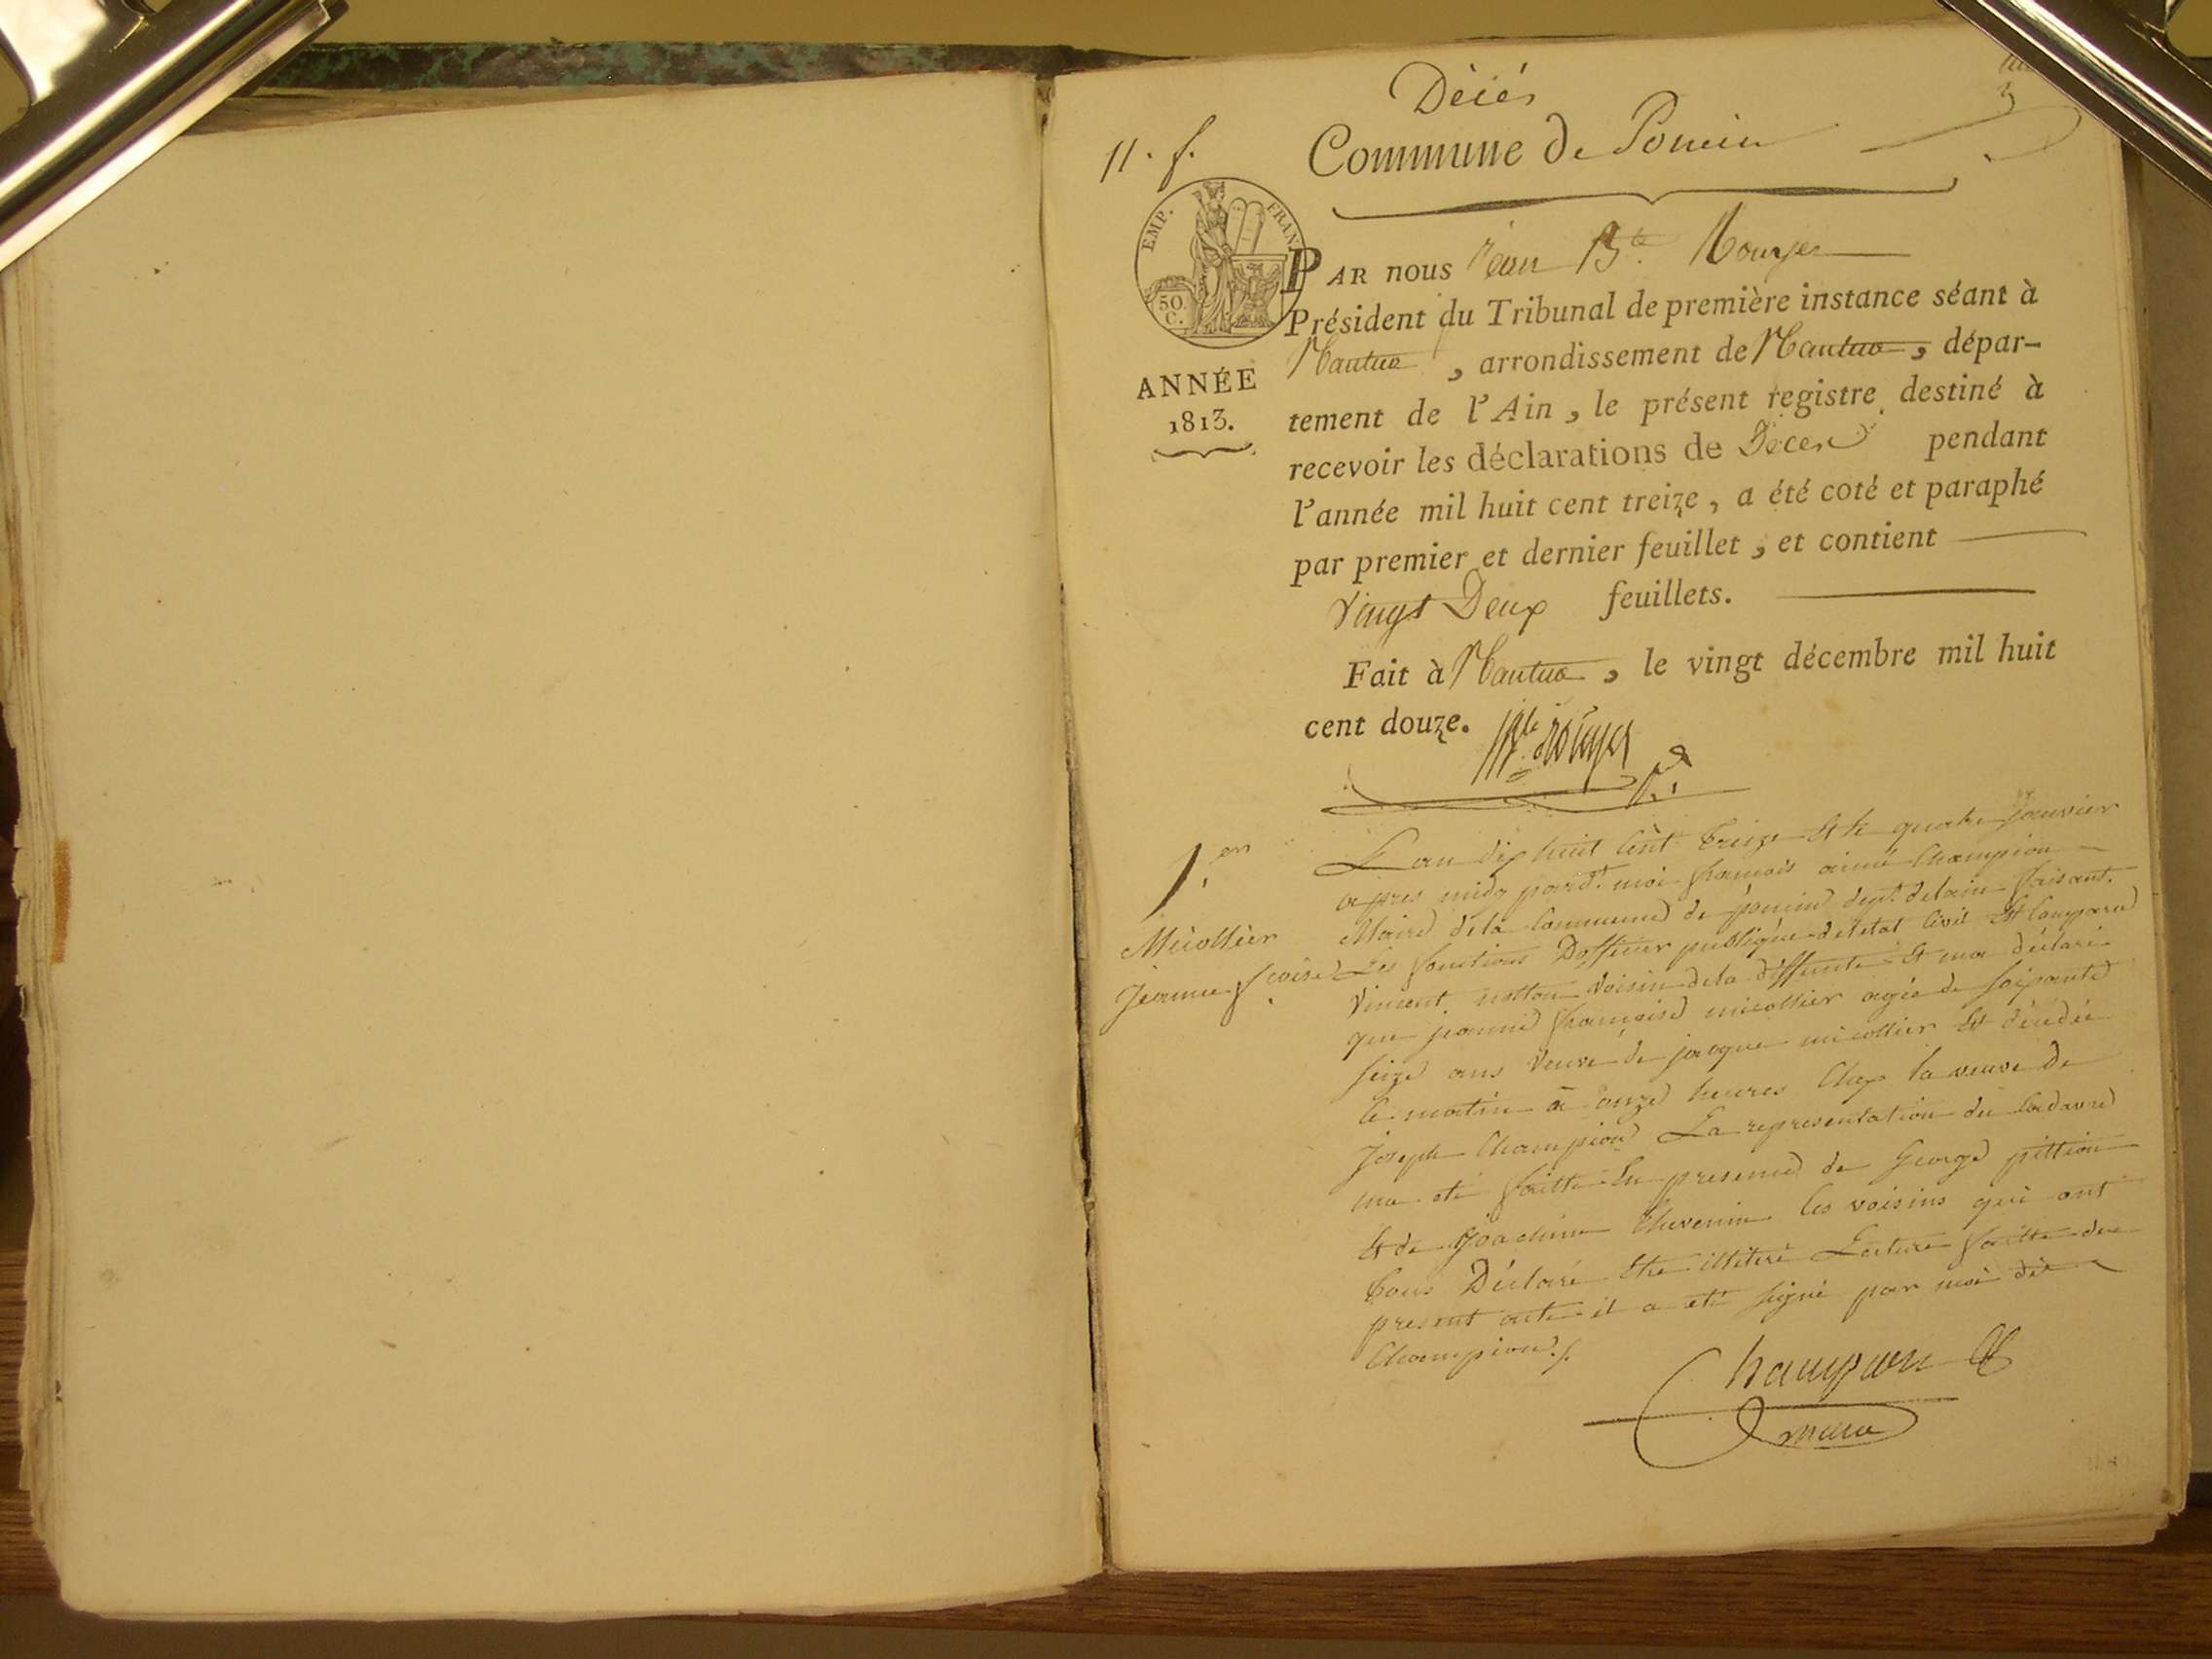 Décés
11. f.
Commune de Poncin
EMP. FRAN.
50 C.
ANNÉE
1813.
PAR nous Jean Bte
Président du Tribunal de première instance séant à
Nantua, arrondissement de Nantua, dépar-
tement de l'Ain, le présent registre destiné à
recevoir les déclarations de Décès pendant
l'année mil huit cent treize, a été coté et paraphé
par premier et dernier feuillet, et contient
vingt Deux feuillets.
Fait à Nantua, le vingt décembre mil huit
cent douze.
1.er
Micollier
Jeanne fcoise
L'an dix huit Cent treize Et le quatre janvier
apres midy pardt. moi françois aimé Champion
Maire dela Commune de poncin dept. delain faisant
Les fonctions Dofficier publique deletat Civil Est Comparu
Vincent voisin dela deffunte Et ma déclaré
que jeanne françoise micollier agée de soixante
seize ans Veuve de jacque micollier Est décédée
le matin a onze heures Chex la veuve de
Joseph Champion La representation du Cadavre
ma eté faitte En presence de George pittion
Et de Joachim thevenin les voisins qui ont
tous Déclaré Etre illiteré Lecture faitte du
present acte il a eté signé par moi dit
Champion ./.
Champion
maire